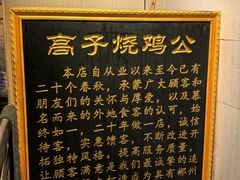 高子烧鸡公
本店自从业以来至今已有
二十个春秋，承蒙广大顾客和
朋友们的关怀与厚爱，以及慕
名而来的外地食客的认可，始
终如一，二十年做一店，诚信
务实，忠悃馈客，不断改进开
拓独特风格。提高服务质量，
让顾客满意是我们最诚挚的追